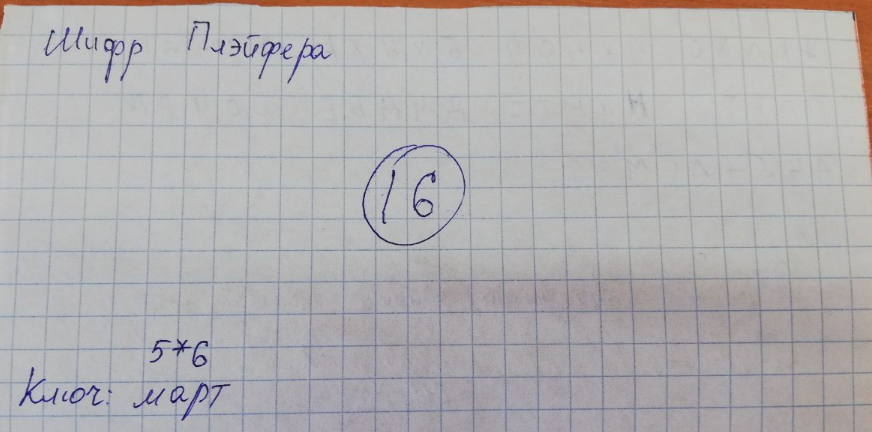 Шифр Плэйфера
16
5*6
Ключ: март